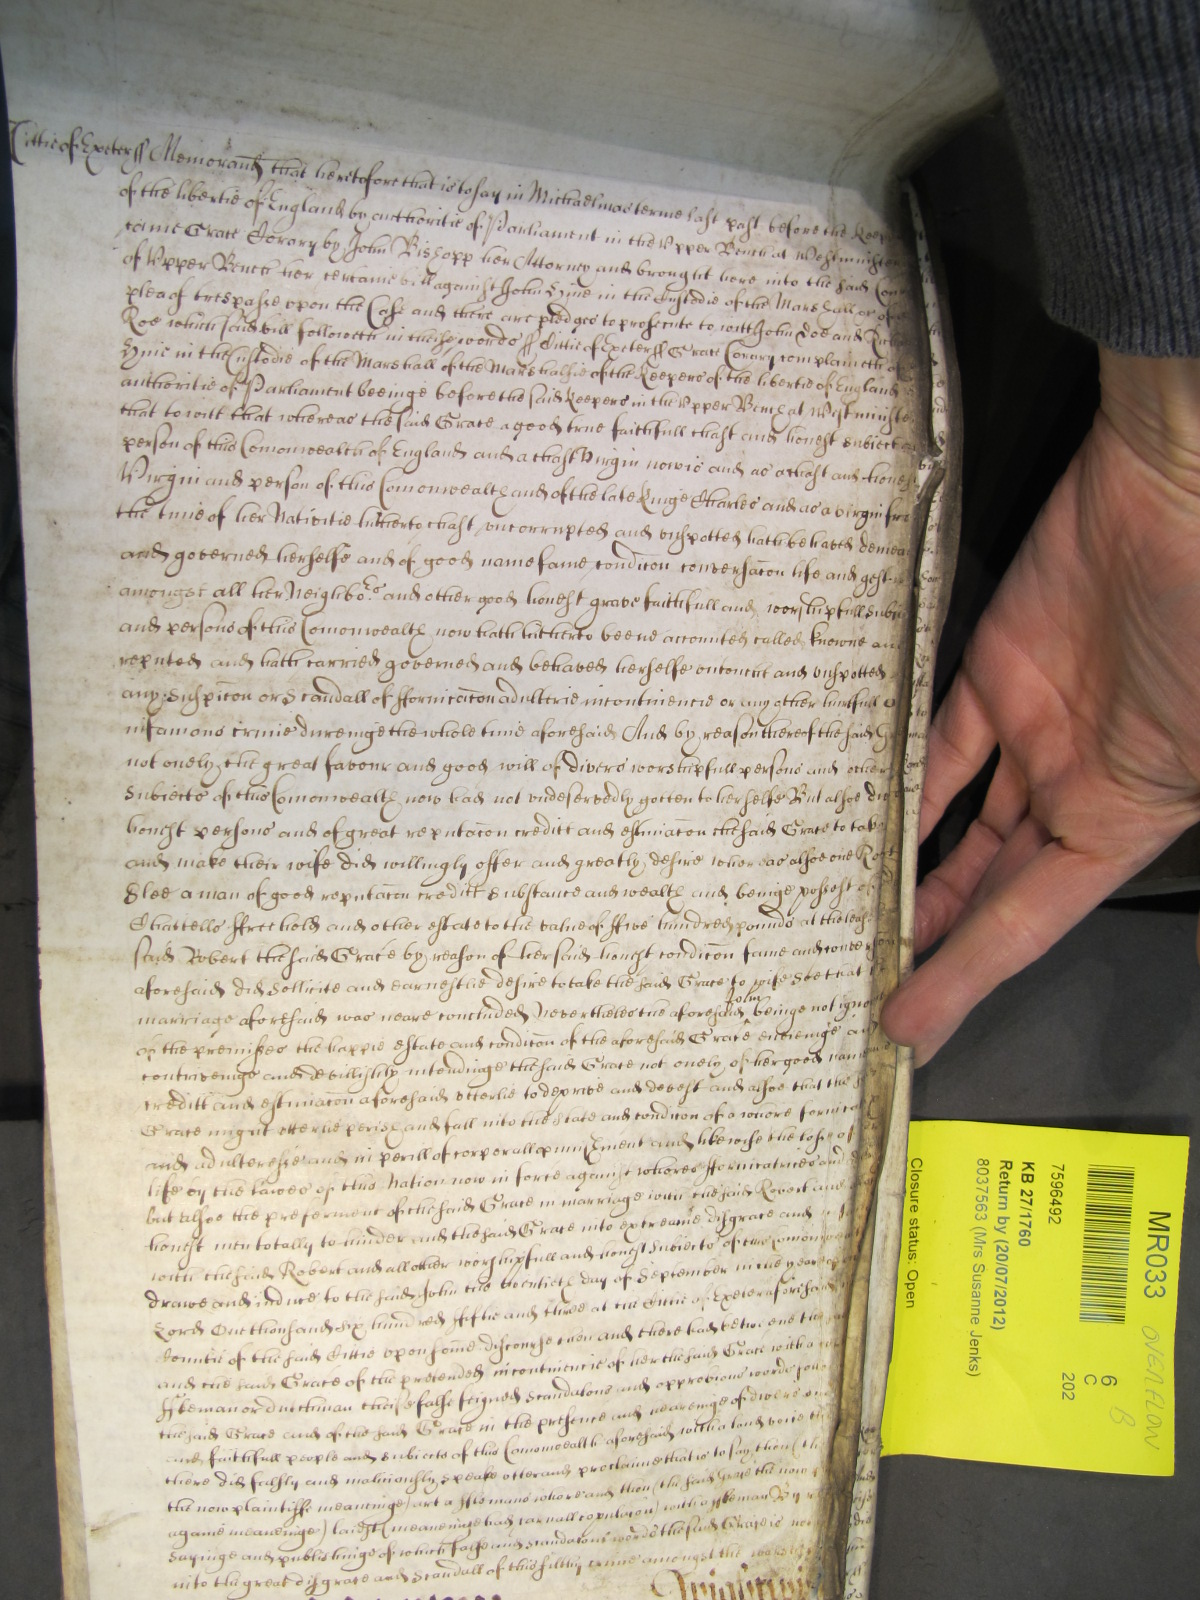 Cittie of Exeter ss Memorand that heretofore that is to say in Michaelmas terme last past before the Keep
of the libertie of England by authoritie of Parliament in the Upper Bench at Westminster
came Grace Corary by John Bishopp her Attorney and brought here into the said Cou
of Upper Bench her certaine bill against John Hine in the Custodie of the Marshall &c of a
plea of trespasse upon the Case and there are pledges to prosecute to witt John Doe and Rich
Roe which said bill followeth in these words ss Cittie of Exeter ss Grace Corary complaineth of
Hine in the Custodie of the Marshall of the Marshalsie of the Keepers of the libertie of England
authoritie of Parliament beeinge before the said Keepers in the Upper Bench at Westminster
that to witt that whereas the said Grace a good true faithfull chast and honest subiect
person of this Comonwealth of England and a chast Virgin now is and as a chast and honest
Virgin and person of this Comonwealth and of the late Kinge Charles and as a virgin fro
the time of her Nativitie hitherto chast uncorrupted and unspotted hath behaved demea
and governed herselfe and of good name fame condicon conversacon life and gest
amongst all her Neighbors and other good honest grave faithfull and worshipfull subie
and persons of this Comonwealth now hath hitherto beene accounted called knowne an
reputed and hath carried governed and behaved herselfe untoucht and unspotted
any Suspicon or Scandall of ffornicacon adulterie incontinencie or any other hurtfull
infamous crime dureinge the whole time aforesaid And by reason thereof the said G
not onely the great favour and good will of divers worshipfull persons and other
Subiects of this Comonwealth now had not undeservedly gotten to herselfe But alsoe div
honest persons and of great reputacon creditt and estimacon the said Grace to take
and make their wife did willingly offer and greatly desire whereas alsoe one Robt
Slee a man of good reputacon creditt Substance and wealth and beinge possest of
Chattells ffreehold and other estate to the value of ffive hundred pounds at the least
said Robert the said Grace by reason of her said honest condicon fame and conver
aforesaid did Sollicite and earnestlie desire to take the said Grace to wife Soe that
John
marriage aforesaid was neare concluded Neverthelesse the aforesaid beinge not igno
of the premisses the happie estate and condicon of the aforesaid Grace envieinge and
contriveinge and devillishly intendinge the said Grace not onely of her good name
creditt and estimacon aforesaid utterlie to deprive and devest and alsoe that the
Grace might utterlie perish and fall into the State and condicon of a whore fornica
and adulteresse and in perill of corporall punishment and likewise the losse of
life by the lawes of this Nation now in force against whores ffornicatrices and
but alsoe the preferment of the said Grace in marriage with the said Robert and
honest men totally to hinder and the said Grace into extreame disgrace and
with the said Robert and all other worshipfull and honest Subiects of this Comonwealth
drawe and induce to the said John the twentieth day of September in the yeare of
Lord One thousand Six hundred ffiftie and three at the Cittie of Exeter aforesaid
Countie of the said Cittie upon some discourse then and there had betweene the
and the said Grace of the pretended incontinencie of her the said Grace with a
ffleman or dutchman theise false feigned Scandalous and opprobrious words
the said Grace and of the said Grace in the presence and heareinge of divers
and faithfull people and Subiects of this Comonwealth aforesaid with a loud voice
there did falsly and maliciously speake utter and proclaime that is to say thou (th
the now plaintiffe meaninge) art a fflemans whore and thou (the said Grace the now
againe meaninge) laidst (meaninge had carnall copulacion) with a ffleman By
Sayinge and publishinge of which false and Scandalous words the said Grace is
into the great disgrace and Scandall of this filthy crime amongst the
MR033
OVERFLOW
B
6
C
202
7596492
KB 27/1760
Return by (20/07/2012)
8037563 (Mrs Susanne Jenks)
Closure status: Open